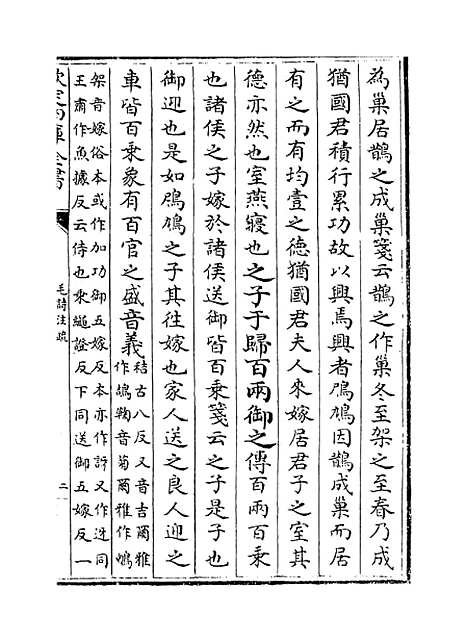 為巢居鵲之成巢箋云鵲之作巢冬至架之至春乃成
猶國君積行累功故以興焉興者鳲鳩因鵲成巢而居
有之而有均壹之徳猶國君夫人來嫁居君子之室其
德亦然也室燕寢也之子于歸百兩御之傳百兩百乗
也諸侯之子嫁於諸侯送御皆百乗箋云之子是子也
御迎也是如鳲鳩之子其徃嫁也家人送之良人迎之
車皆百乗象有百官之盛音義
秸古八反又音吉爾雅
作鴶鞠音菊爾雅作鵴
架音嫁俗本或作加功御五嫁反本亦作訝又作迓同
王肅作魚據反云侍也乗䋲證反下同送御五嫁反一
欽定四庫全書
毛詩注疏
二